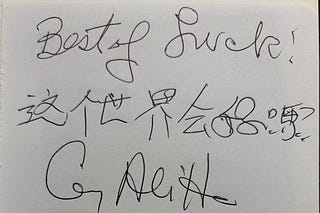 Best of Luck!
这个世界会好嗎?
Guy Alitto